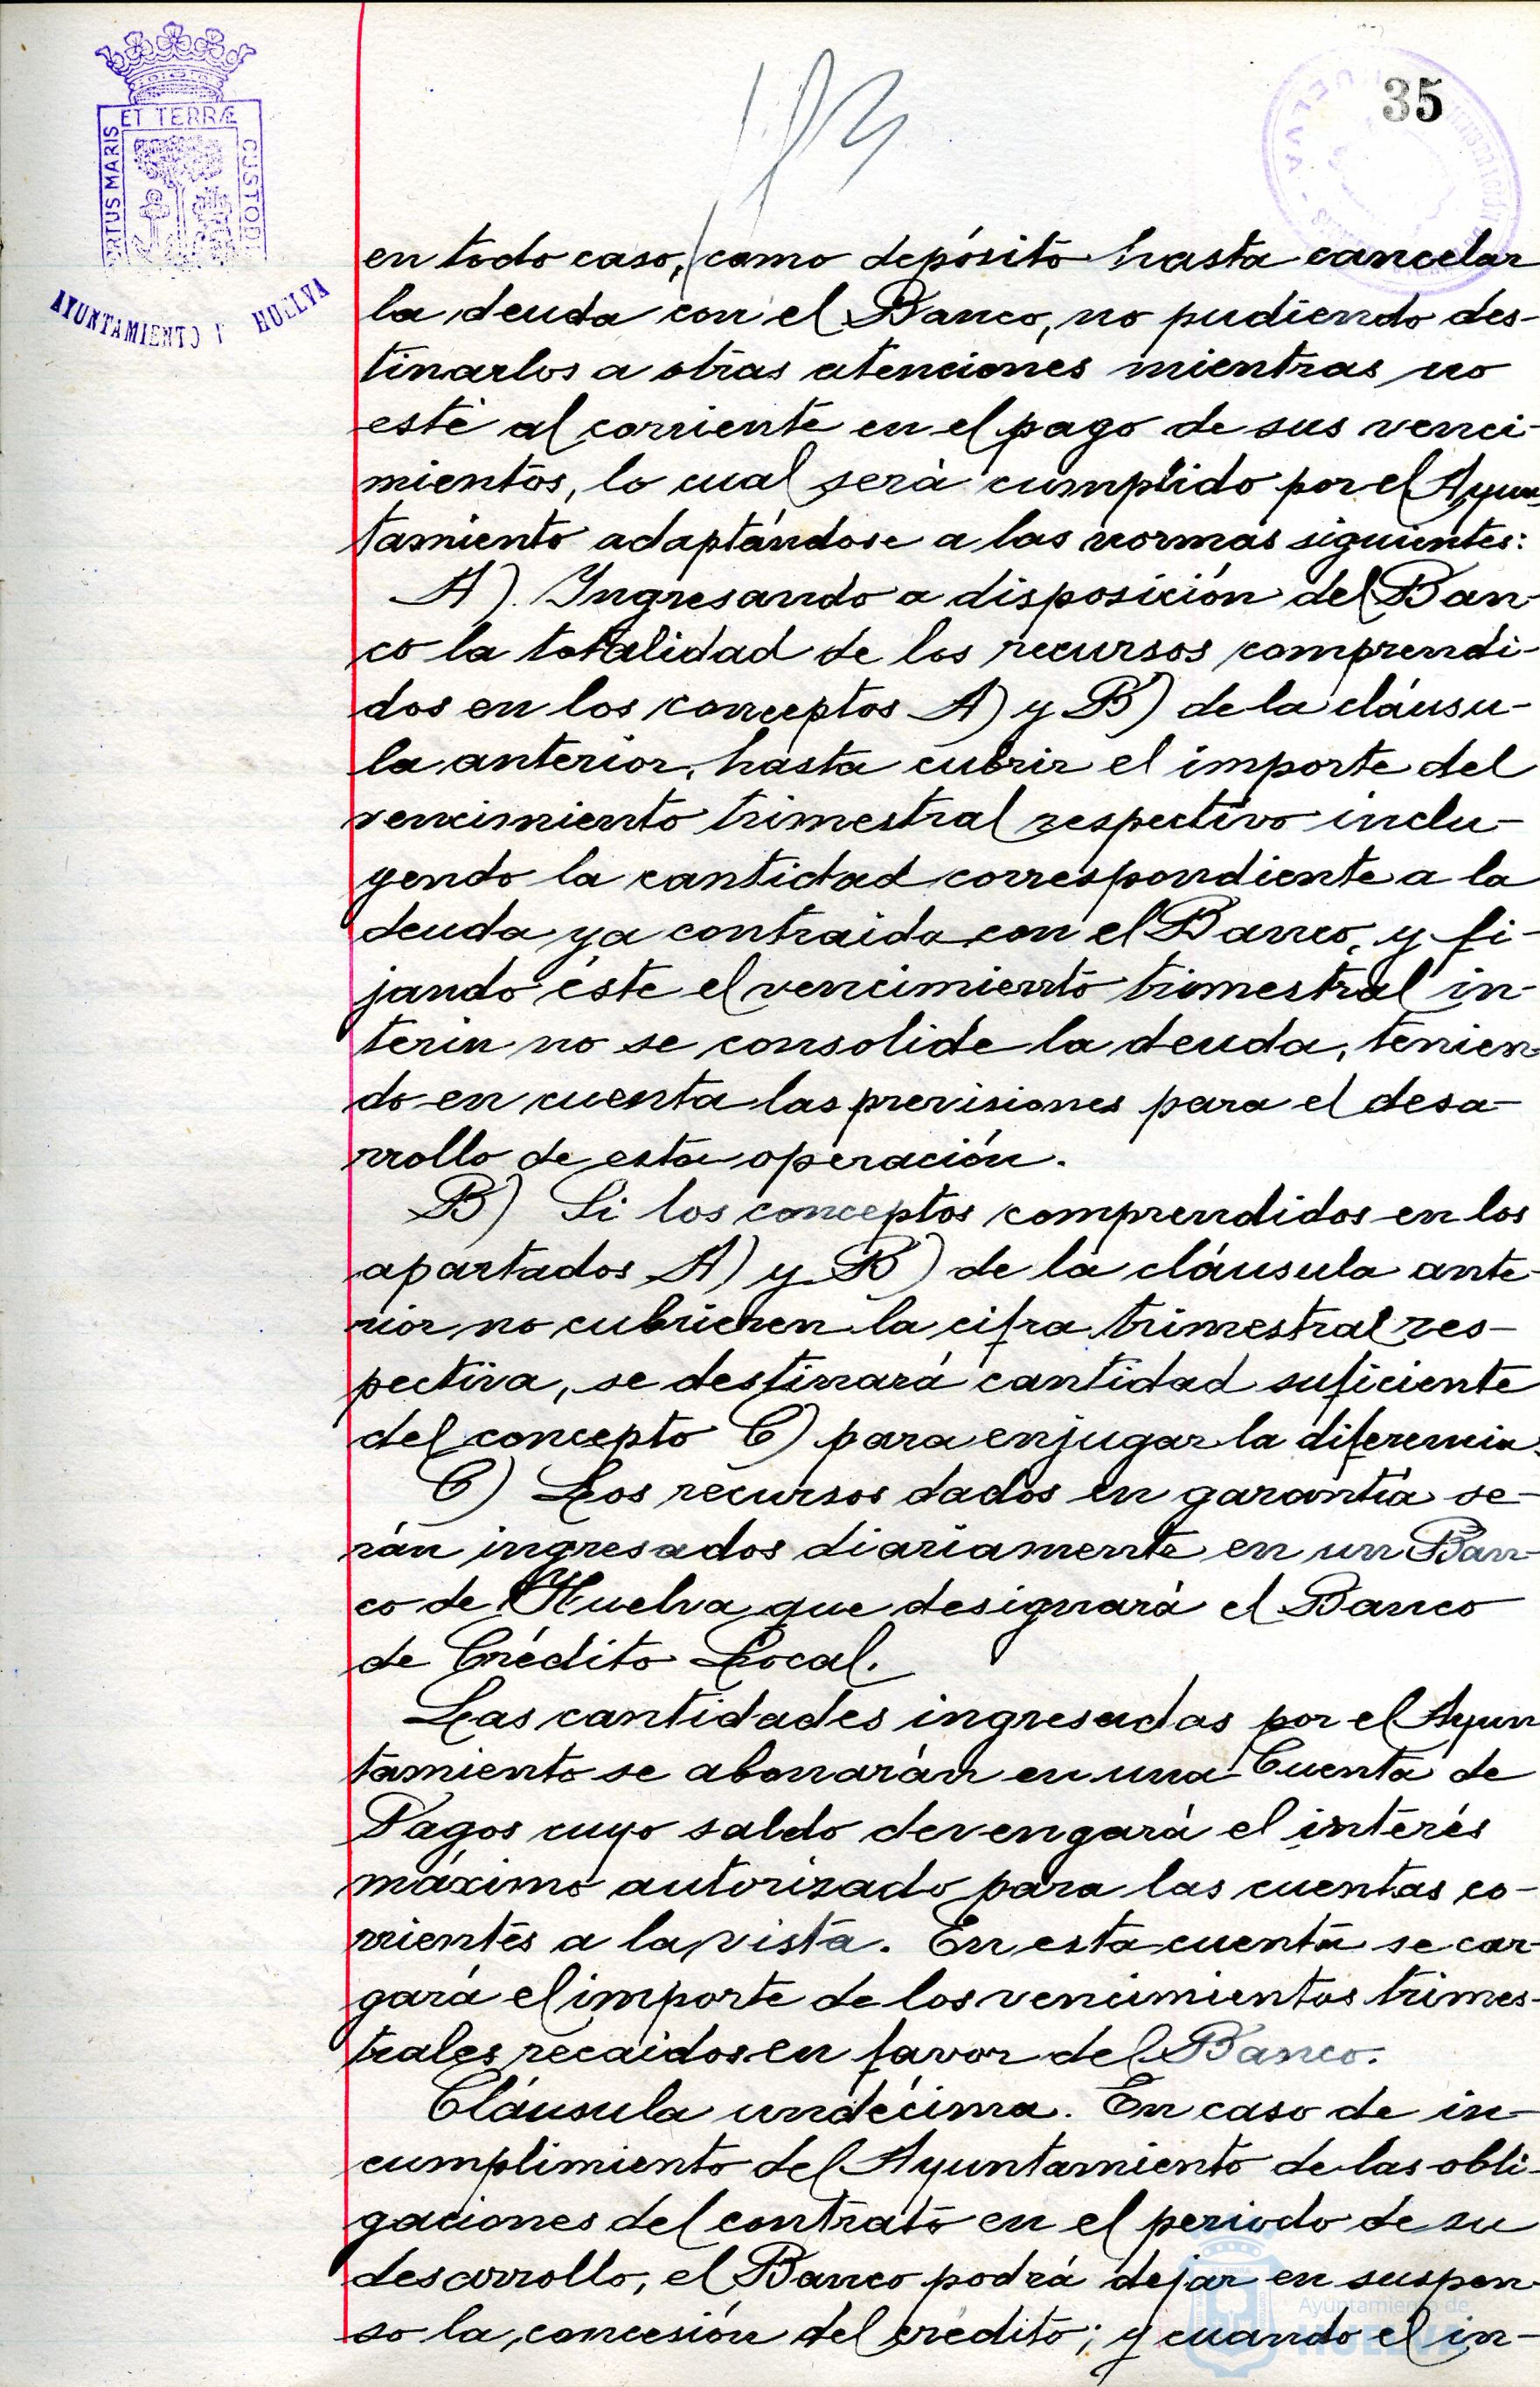 35
ET TERRÆ
RTUS MARIS
CUSTODI
AYUNTAMIENTO HUELVA
en todo caso, como depósito hasta cancelar
la deuda con el Banco, no pudiendo des-
tinarlos a otras atenciones mientras no
esté al corriente en el pago de sus venci-
mientos, lo cual será cumplido por el Ayun-
tamiento adaptándose a las normas siguientes:
A). Ingresando a disposición del Ban-
co la totalidad de los recursos comprendi-
dos en los conceptos A) y B) de la cláusu-
la anterior, hasta cubrir el importe del
vencimiento trimestral respectivo inclu-
yendo la cantidad correspondiente a la
deuda ya contraida con el Banco, y fi-
jando éste el vencimiento trimestral in-
terin no se consolide la deuda, tenien-
do en cuenta las previsiones para el desa-
rrollo de esta operación.
B) Si los conceptos comprendidos en los
apartados A) y B) de la cláusula ante-
rior no cubrieren la cifra trimestral res-
pectiva, se destinará cantidad suficiente
del concepto C) para enjugar la diferencia.
C) Los recursos dados en garantía se-
rán ingresados diariamente en un Ban-
co de Huelva que designará el Banco
de Crédito Local.
Las cantidades ingresadas por el Ayun
tamiento se abonarán en una Cuenta de
Pagos cuyo saldo devengará el interés
máximo autorizado para las cuentas co-
rrientes a la vista. En esta cuenta se car-
gará el importe de los vencimientos trimes-
trales recaidos en favor del Banco.
Cláusula undécima. En caso de in-
cumplimiento del Ayuntamiento de las obli-
gaciones del contrato en el periodo de su
desarrollo, el Banco podrá dejar en suspen-
so la concesión del crédito; y cuando el in-
Ayuntamiento de
HUELVA